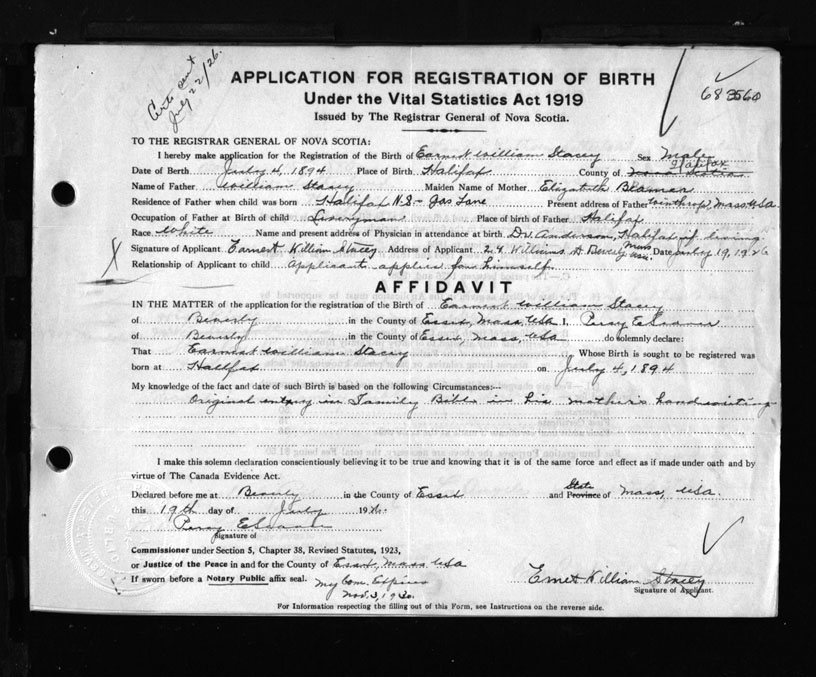 Certs sent
July 22/26.
683560
APPLICATION FOR REGISTRATION OF BIRTH
Under the Vital Statistics Act 1919
Issued by The Registrar General of Nova Scotia.
TO THE REGISTRAR GENERAL OF NOVA SCOTIA:
I hereby make application for the Registration of the Birth of Earnest William Stacey Sex Male
Date of Birth July 4, 1894 Place of Birth Halifax County of Halifax Nova Scotia
Name of Father William Stacey Maiden Name of Mother Elizabeth
Residence of Father when child was born Halifax N.S- Gas Lane Present address of Father Winthrop, Mass, USA
Occupation of Father at Birth of child Liveryman Place of birth of Father Halifax
Race White Name and present address of Physician in attendance at birth Dr. Anderson, Halifax if living
Signature of Applicant Earnest William Stacey Address of Applicant 24 Williams St Beverly Mass USA. Date July 19, 1926
Relationship of Applicant to child Applicant applies for himself
AFFIDAVIT
IN THE MATTER of the application for the registration of the Birth of Earnest William Stacey
of Beverly in the County of Essex, Mass, USA I, Percy
of Beverly in the County of Essex, Mass, USA do solemnly declare:
That Earnest William Stacey Whose Birth is sought to be registered was
born at Halifax on July 4, 1894
My knowledge of the fact and date of such Birth is based on the following Circumstances:—
Original entry in Family Bible in his mother's handwriting
I make this solemn declaration conscientiously believing it to be true and knowing that it is of the same force and effect as if made under oath and by
virtue of The Canada Evidence Act.
Declared before me at Beverly in the County of Essex and State Province of Mass, USA.
this 19th day of July 1926.
Percy
Signature of
Commissioner under Section 5, Chapter 38, Revised Statutes, 1923,
or Justice of the Peace in and for the County of Essex, Mass USA
If sworn before a Notary Public affix seal. My Com. Expires
Nov. 3, 1930.
Ernest William Stacey
Signature of Applicant.
For Information respecting the filling out of this Form, see Instructions on the reverse side.